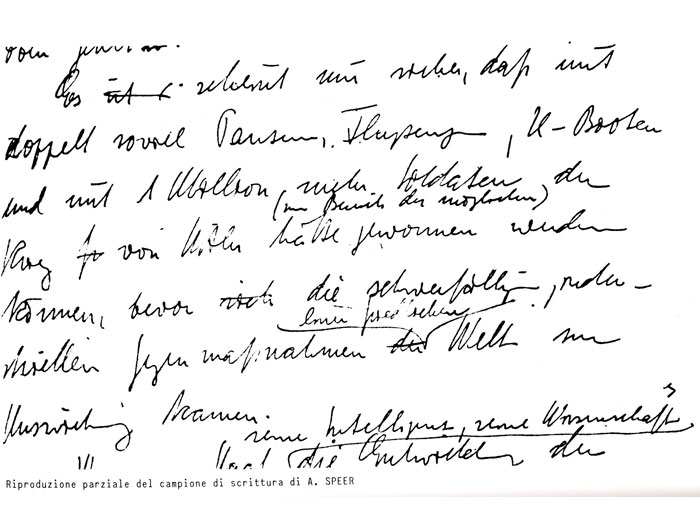 vom
Es ist scheint mir sicher, daß mit
doppelt soviel Panzern, Flugzeugen, U-Booten
und mit 1 Million mehr Soldaten der
(im Bereich des möglichen)
Krieg von Hitler hätte gewonnen werden
können, bevor die schwerfälligen, indu-
striellen Gegenmaßnahmen der Welt zur
Auswirkung kamen.
seine Intelligenz, seine Wissenschaft,
die der
Riproduzione parziale del campione di scrittura di A. SPEER